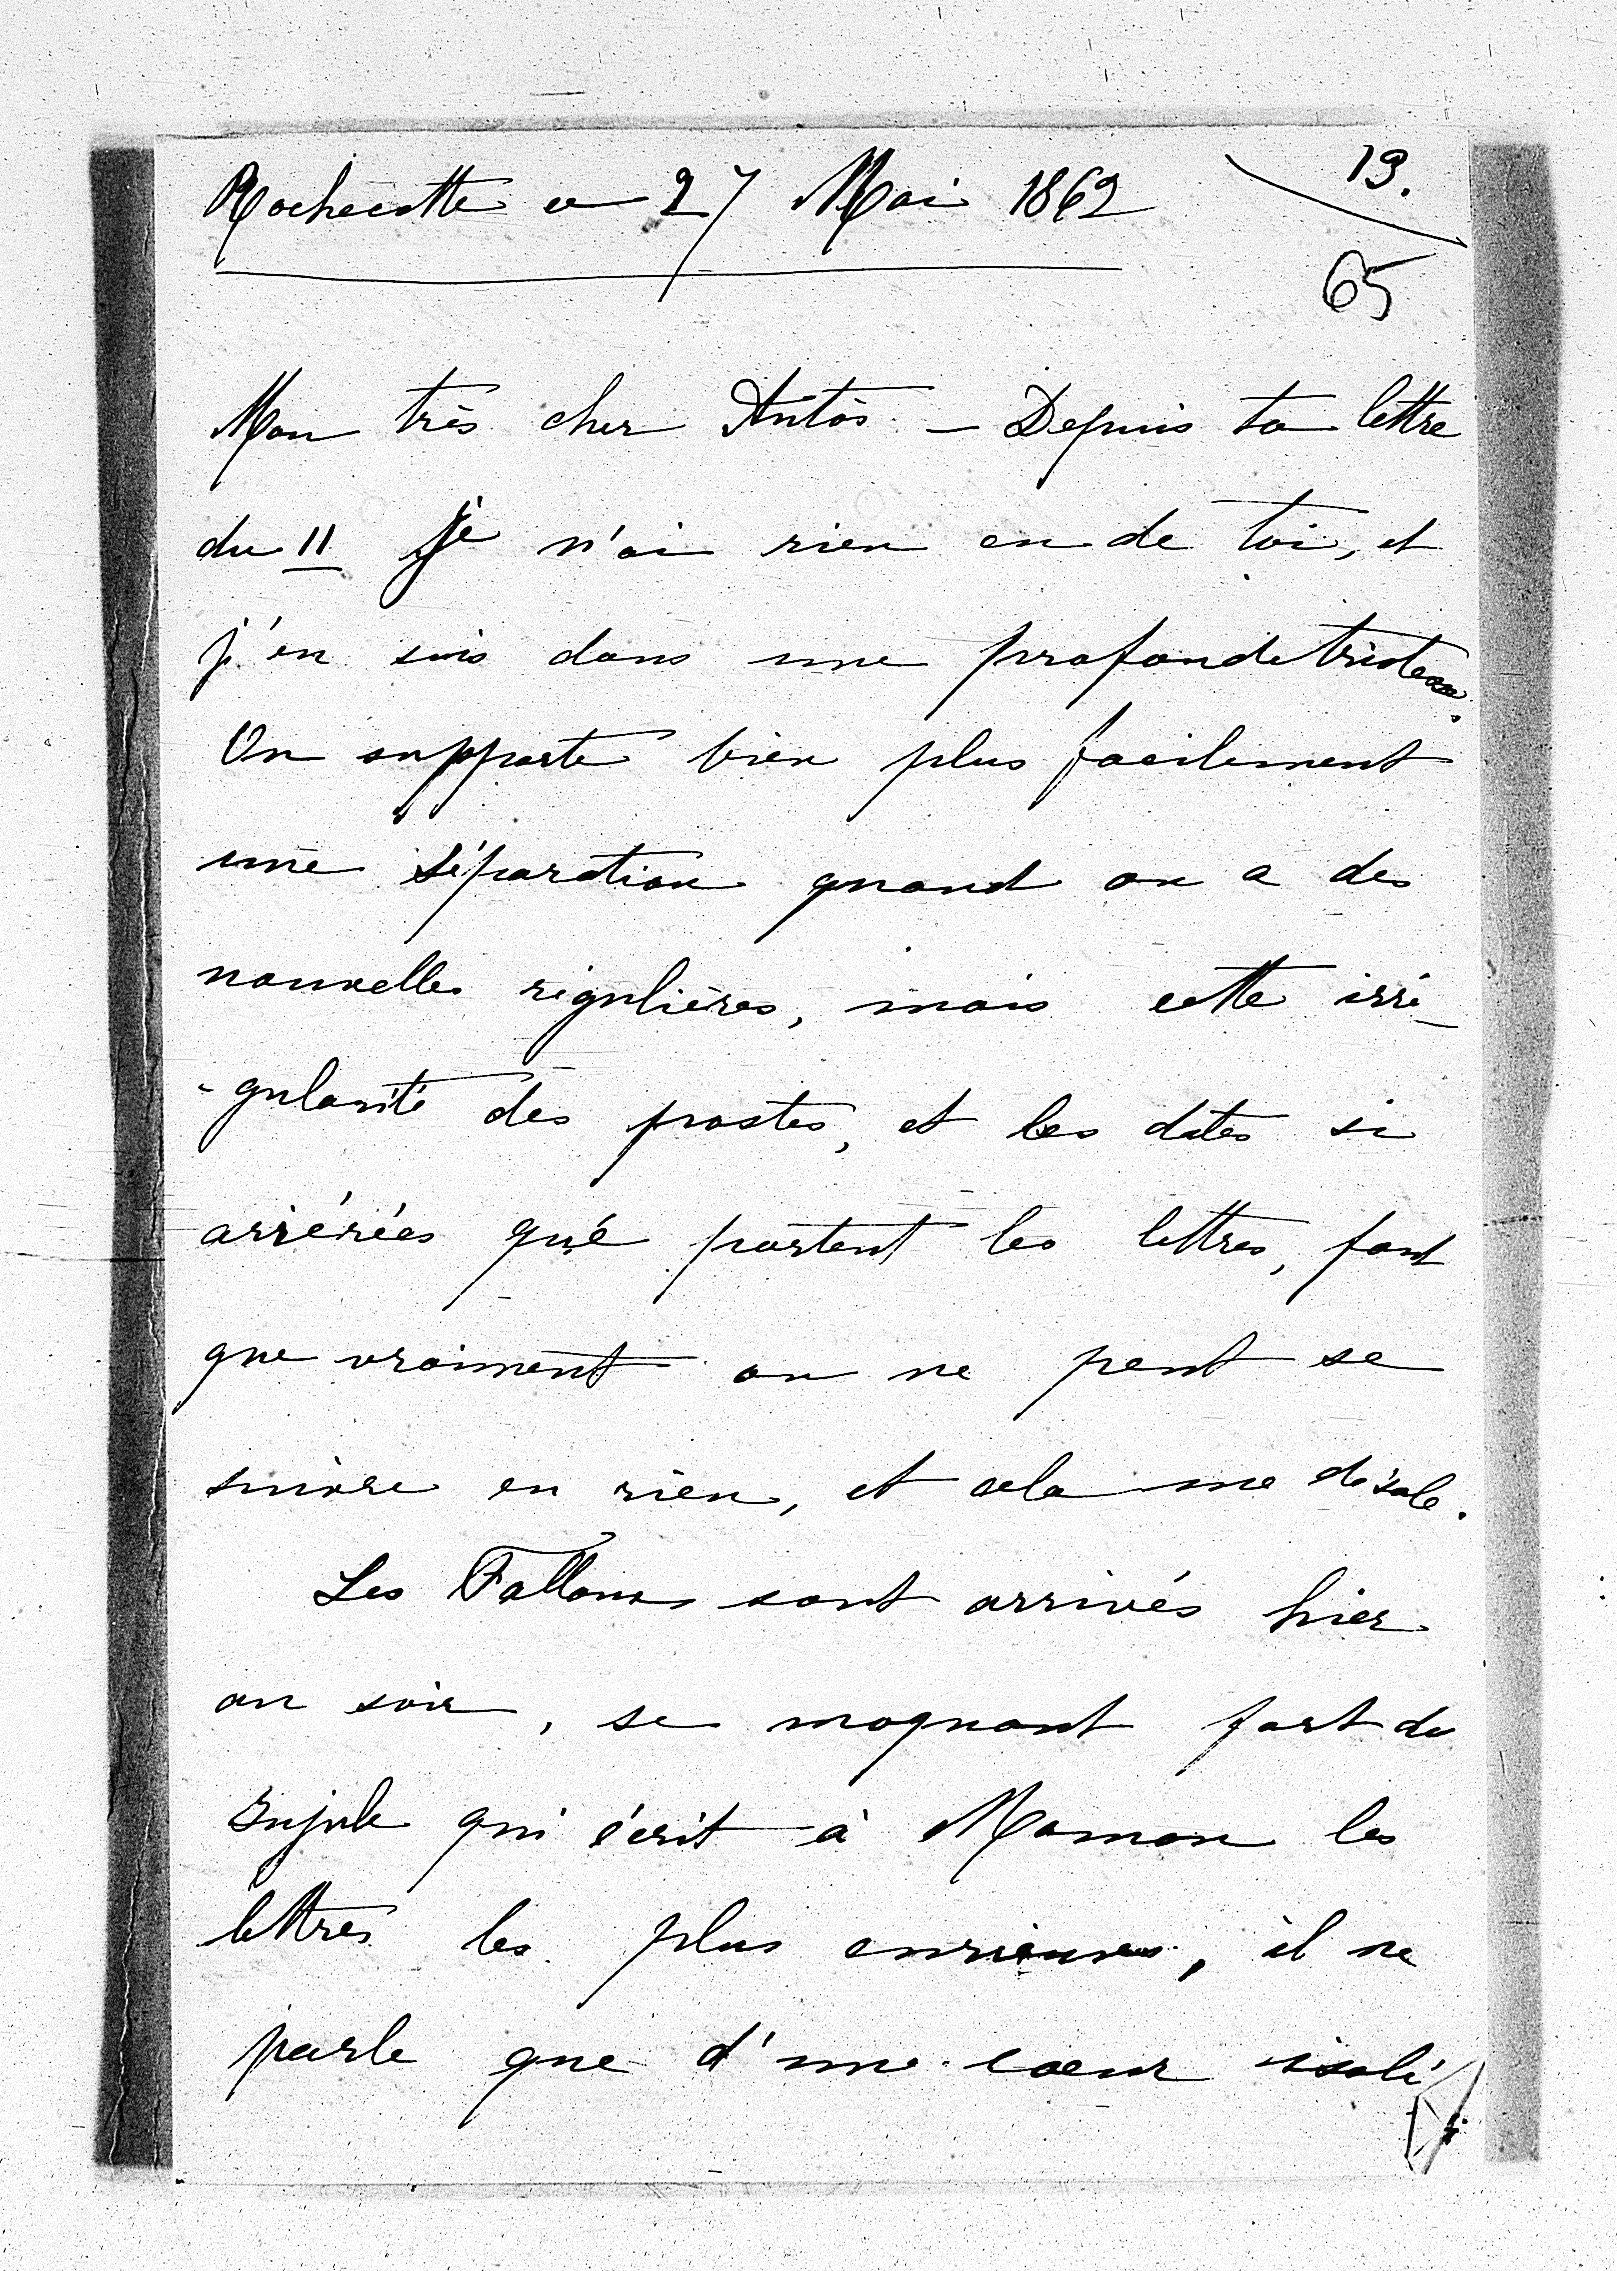 Rochecotte ce 27 Mai 1862
13.
65
Mon très cher Antos - Depuis ta lettre
du 11 je n'ai rien eu de toi, et
j'en suis dans une profonde tristesse.
On supporte bien plus facilement
une séparation quand on a des
nouvelles régulières, mais cette irré-
-gularité des postes, et les dates si
arriérées que portent les lettres, font
que vraiment on ne peut se
suivre en rien, et cela me désole.
Les sont arrivés hier
au soir, se moquant fort de
qui écrit à Maman les
lettres les plus curieuses, il ne
parle que d'une coeur isolé